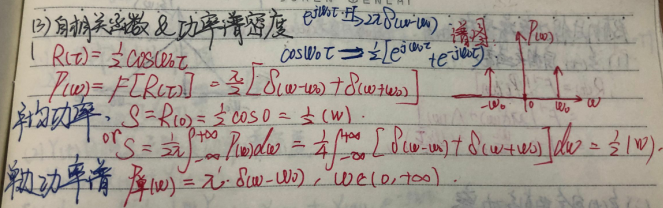 (3) 自相关函数 & 功率谱密度 e^{jω₀t} F→ 2π δ(ω-ω₀)
R(τ) = ½ cosω₀τ cosω₀τ = ½[e^{jω₀τ} + e^{-jω₀τ}] 谱图 P(ω)
P(ω) = F[R(τ)] = π/2 [δ(ω-ω₀) + δ(ω+ω₀)] -ω₀ 0 ω₀ ω
平均功率. S = R(0) = ½ cos0 = ½ (W)
or S = 1/2π ∫_{-∞}^{+∞} P(ω)dω = ¼ ∫_{-∞}^{+∞} [δ(ω-ω₀) + δ(ω+ω₀)] dω = ½ (W).
单边功率谱 P单(ω) = π·δ(ω-ω₀), ω∈(0,+∞).